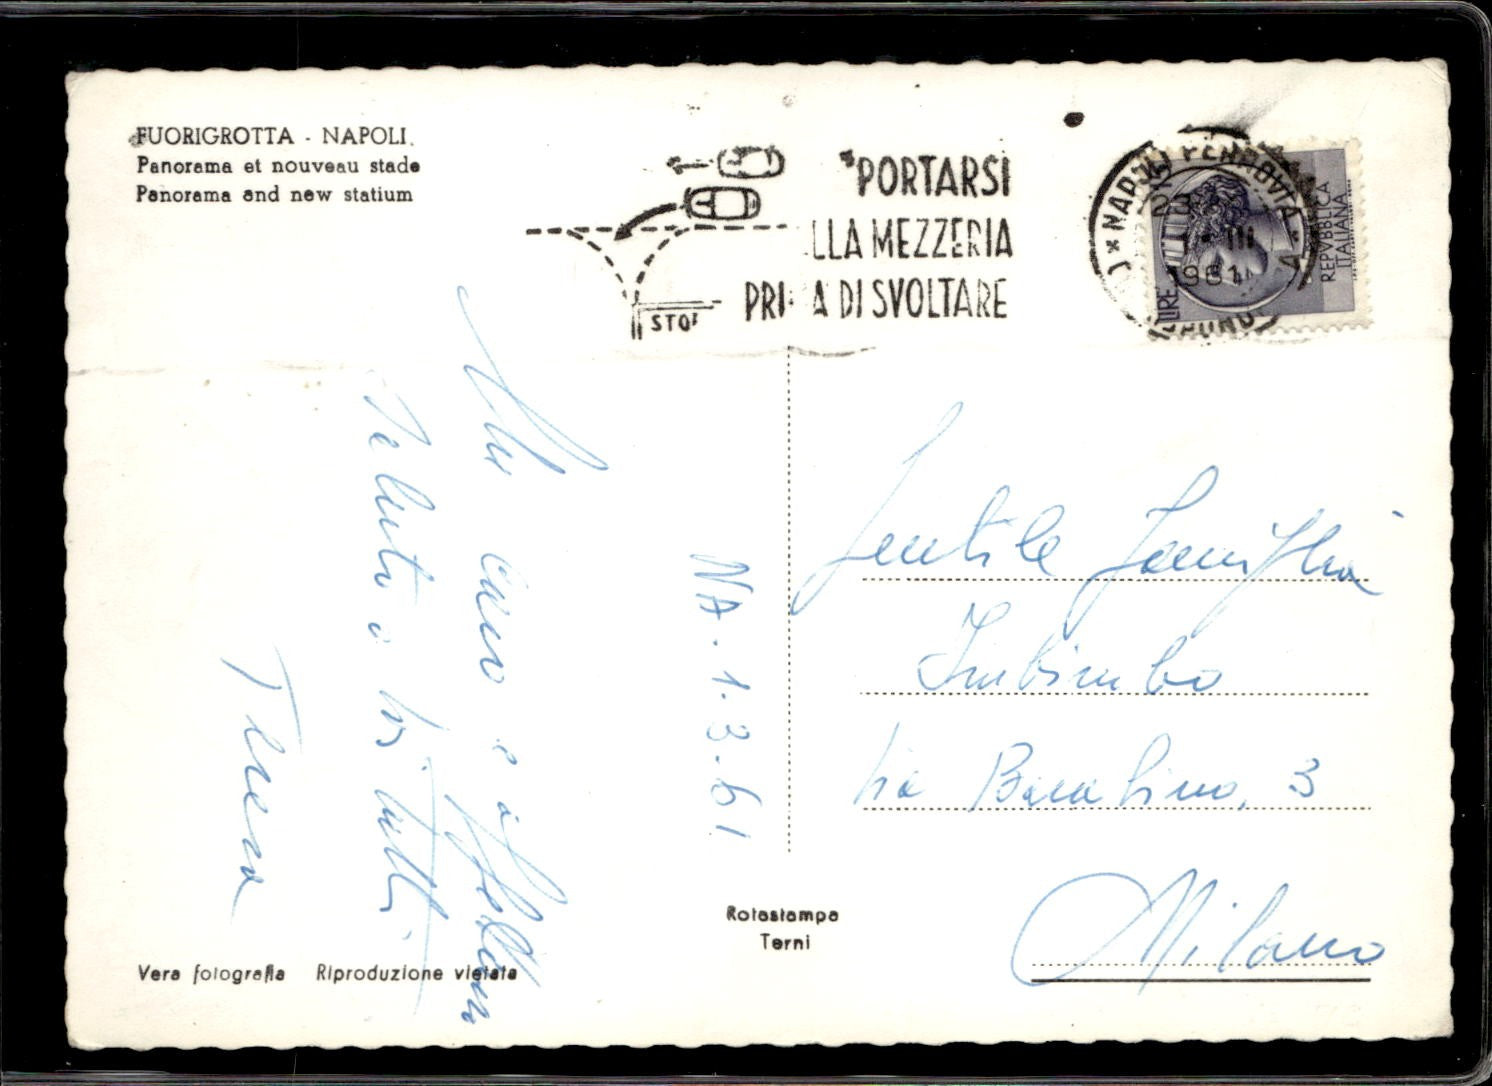 FUORIGROTTA - NAPOLI.
Panorama et nouveau stade
Panorama and new statium
PORTARSI
LLA MEZZERIA
PRI A DI SVOLTARE
STO
NAPOLI FERROVIA
1 - III
1961
LIRE
REPVBBLICA
ITALIANA
NA. 1.3.61
caro e
saluto a voi tutti
Teresa
Gentile Famiglia
Imbimbo
Via 3
Milano
Rotostampa
Terni
Vera fotografia Riproduzione vietata